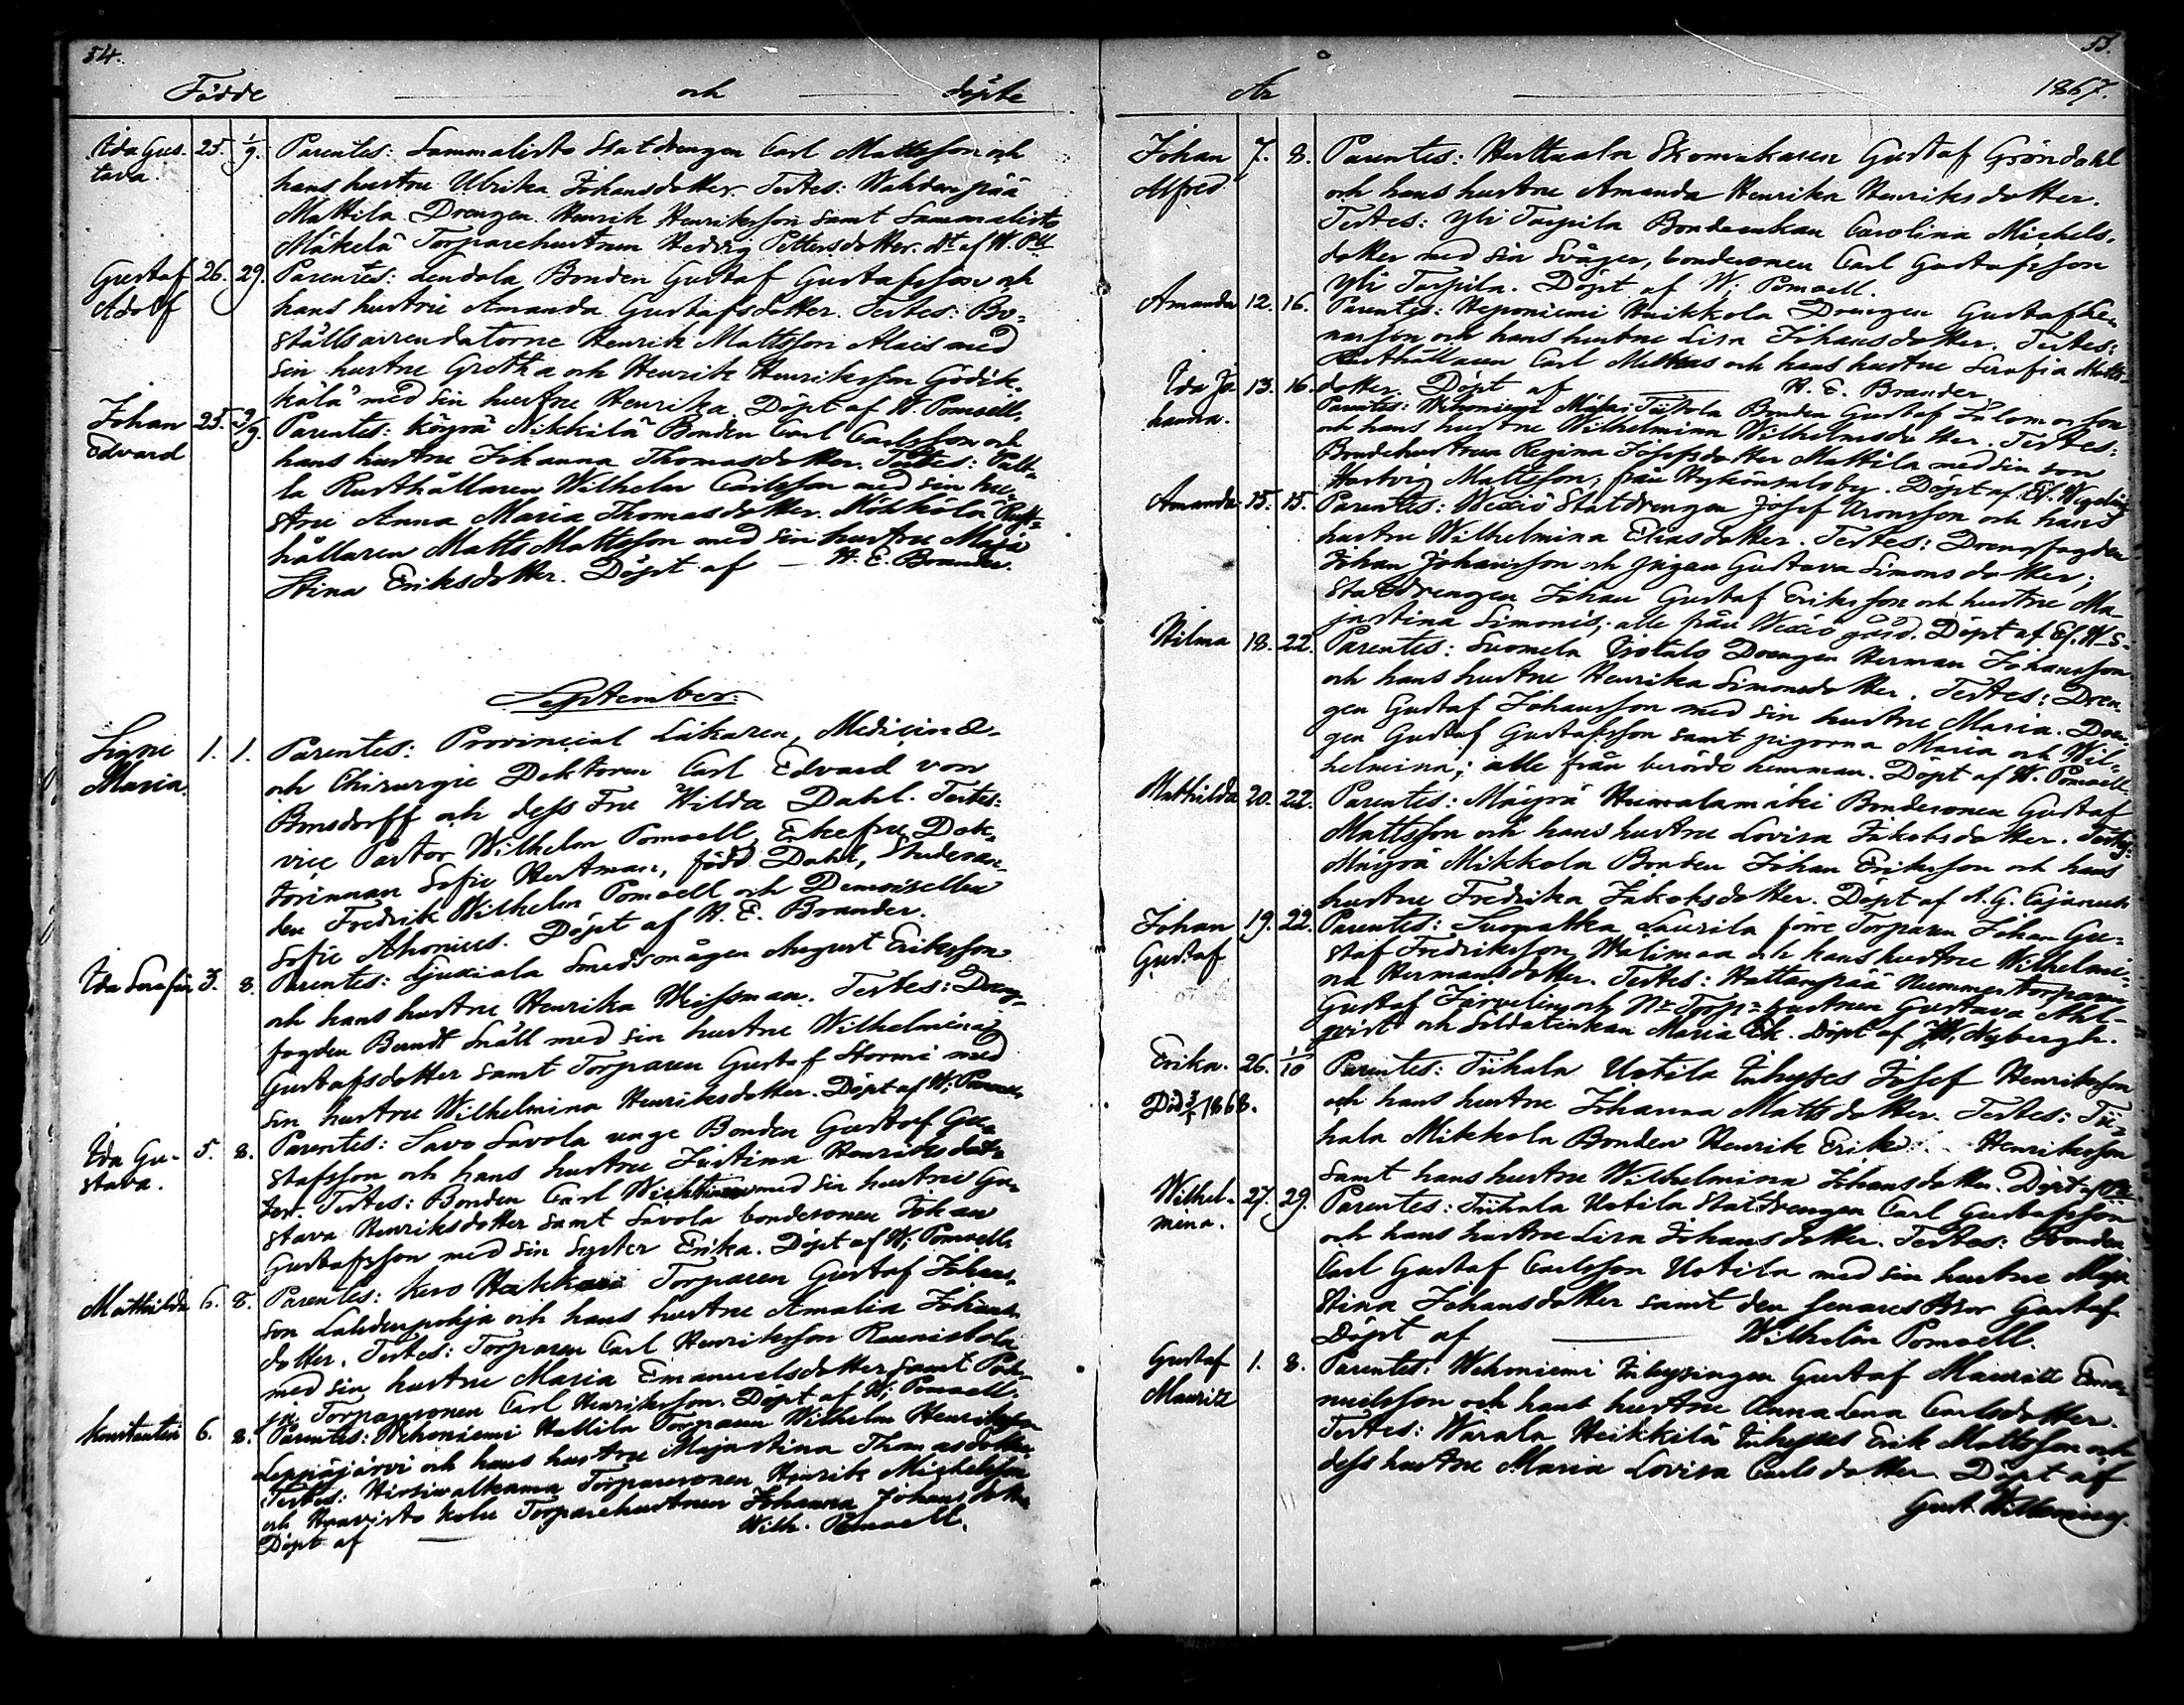 54.
Födde och döpte
Ida Gus- 25. 1/9. Parentes: Sammalisto Statdrengen Carl Mattsson och
tava. hans hustru Ulrika Johansdotter. Testes: Wahdenpää
Mattila Drengen Henrik Henriksson samt Sammalisto
Mäkelä Torparehustrun Hedvig Pettersdotter. Dt af W. Pll
Gustaf 26. 29. Parentes: Lendola Bonden Gustaf Gustafsson och
Adolf hans hustru Amanda Gustafsdotter. Testes: Bo-
ställsarrendatorne Henrik Mattsson Alais med
sin hustru Gretha och Henrik Henriksson Gödik-
kälä med sin hustru Henrika. Döpt af W. Pomoell.
Johan 25. 2/9. Parentes: Köyrä Nikkilä Bonden Carl Carlsson och
Edvard hans hustru Johanna Thomasdotter. Testes: Palt-
la Rusthållaren Wilhelm Carlsson med sin hu-
stru Anna Maria Thomasdotter. Mökkölä Rust-
hållaren Matts Mattsson med sin hustru Maja
Stina Eriksdotter. Döpt af — H. E. Brander.
September.
Signe 1. 1. Parentes: Provincial Läkaren, Medicine
Maria. och Chirurgie Doktoren Carl Edvard von
Bonsdorff och dess Fru Hilda Dahl. Testes:
vice Pastor Wilhelm Pomoell, Enkefru Dok-
torinnan Sofie Hertman, född Dahl, Studeran-
den Fredrik Wilhelm Pomoell och Demoisellen
Sofie Ahonius. Döpt af H. E. Brander.
Ida Serafia 3. 8. Parentes: Ljuxiala Smedsmågen August Eriksson
och hans hustru Henrika Weissman. Testes: Dreng-
fogden Berndt Snäll med sin hustru Wilhelmina
Gustafsdotter samt Torparen Gustaf Stormi med
sin hustru Wilhelmina Henriksdotter. Döpt af W. Pomoell
Ida Gu- 5. 8. Parentes: Savo Savola unge Bonden Gustaf Gu-
stava. stafsson och hans hustru Justina Henriksdot-
ter. Testes: Bonden Carl med sin hustru Gu-
stava Henriksdotter samt Savola bondesonen Johan
Gustafsson med sin syster Erika. Döpt af W. Pomoell
Mathilda 6. 8. Parentes: Kero Torparen Gustaf Johans-
son Lahdenpohja och hans hustru Amalia Johans-
dotter. Testes: Torparen Carl Henriksson Raunistola
med sin hustru Maria Emanuelsdotter samt Poh-
ja Torparesonen Carl Henriksson. Döpt af W. Pomoell.
Konstantin 6. 8. Parentes: Wehoniemi Hallila Torparen Wilhelm Henriksson
Leppäjärvi och hans hustru Majastina Thomasdotter.
Testes: Hirsiwalkama Torparesonen Henrik Michelsson
och Haavisto Kolu Torparehustrun Johanna Johansdotter
Döpt af — Wilh. Pomoell.
55.
År 1867.
Johan 7. 8. Parentes: Herttuala Skomakaren Gustaf Gröndahl
Alfred och hans hustru Amanda Henrika Henriksdotter.
Testes: Yli Torpila Bondeenkan Carolina Michels-
dotter med sin Svåger, bondesonen Carl Gustafsson
Yli Torpila. Döpt af W. Pomoell.
Amanda 12. 16. Parentes: Heponiemi Huikkola Drengen Gustaf Leo-
narsson och hans hustru Lisa Johansdotter. Testes:
Rusthållaren Carl Mattsson och hans hustru Serafia Matts-
Ida Jo- 13. 16. dotter. Döpt af — H. E. Brander
hanna. Parentes: Wehoniemi Tiitola Bonden Gustaf Salomonsson
och hans hustru Wilhelmina Wilhelmsdotter. Testes:
Bondehustrun Regina Josefsdotter Mattila med sin son
Hartvig Mattsson, från by. Döpt af Ef. Wigelius
Amanda 15. 15. Parentes: Wexiö Statdrengen Josef Aronsson och hans
hustru Wilhelmina Eliasdotter. Testes: Drengfogden
Johan Johansson och pigan Gustava Simonsdotter,
Statdrengen Johan Gustaf Eriksson och hustru Ma-
jastina Simonis, alla från Wexiö gård. Döpt af Ef. W-s.
Hilma 18. 22. Parentes: Suomela Iso Drengen Herman Johansson
och hans hustru Henrika Simonsdotter. Testes: Dren-
gen Gustaf Johansson med sin hustru Maria. Dren-
gen Gustaf Gustafsson samt pigorna Maria och Wil-
helmina; alle från berörde hemman. Döpt af W. Pomoell.
Mathilda 20. 22. Parentes: Mäyrä Huuvalamäki Bondesonen Gustaf
Mattsson och hans hustru Lovisa Jakobsdotter. Testes:
Mäyrä Mikkola Bonden Johan Eriksson och hans
hustru Fredrika Jakobsdotter. Döpt af A. G. Cajanus
Johan 19. 22. Parentes: Suomatka Laurila förre Torparen Johan Gu-
Gustaf staf Fredriksson Walimaa och hans hustru Wilhelmi-
na Hermansdotter. Testes: Hattanpää Nummen torparen
Gustaf Järvelin och Nr Torp- hustrun Gustava Ahl-
qvist och Soldatenkan Maria Ek. Döpt af J. W. Nybergh.
Erika. 26. 1/10 Parentes: Tiihala Uotila Inhyses Josef Henriksson
Död 3/1 1868. och hans hustru Johanna Mattsdotter. Testes: Tii-
hala Mikkola Bonden Henrik Erik Henriksson
samt hans hustru Wilhelmina Johansdotter. Döpt af
Wilhel- 27. 29. Parentes: Tiihala Uotila Statdrengen Carl Gustafsson
mina. och hans hustru Lisa Johansdotter. Testes: Bonden
Carl Gustaf Carlsson Uotila med sin hustru Maja
Stina Johansdotter samt den senares Bror Gustaf.
Döpt af — Wilhelm Pomoell.
Gustaf 1. 8. Parentes: Wehoniemi Inhysingen Gustaf Mauritz Ema-
Mauritz nuelsson och hans hustru Anna Lena Carlsdotter.
Testes: Warala Heikkilä Inhyses Erik Mattsson och
dess hustru Maria Lovisa Carlsdotter. Döpt af
Gust. Willenius.